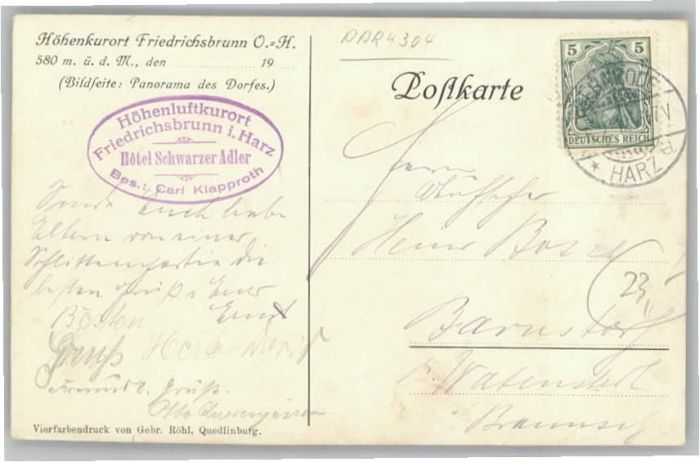 Höhenkurort Friedrichsbrunn O.=H.
580 m. ü. d. M., den 19
(Bildseite: Panorama des Dorfes.)
Höhenluftkurort
Friedrichsbrunn i. Harz
Hôtel Schwarzer Adler
Bes.: Carl Klapproth
Sendet Euch liebe
Eltern von einer
Schlittenpartie die
besten Grüße Euer
Ernst
Besten
Gruß
Freundl. Gruß.
Otto
Vierfarbendruck von Gebr. Röhl, Quedlinburg.
DDR4304
Postkarte
5 5
DEUTSCHES REICH
* HARZ
Herrn
Heinr
23
Barnstorf
Watenstedt
Braunsch